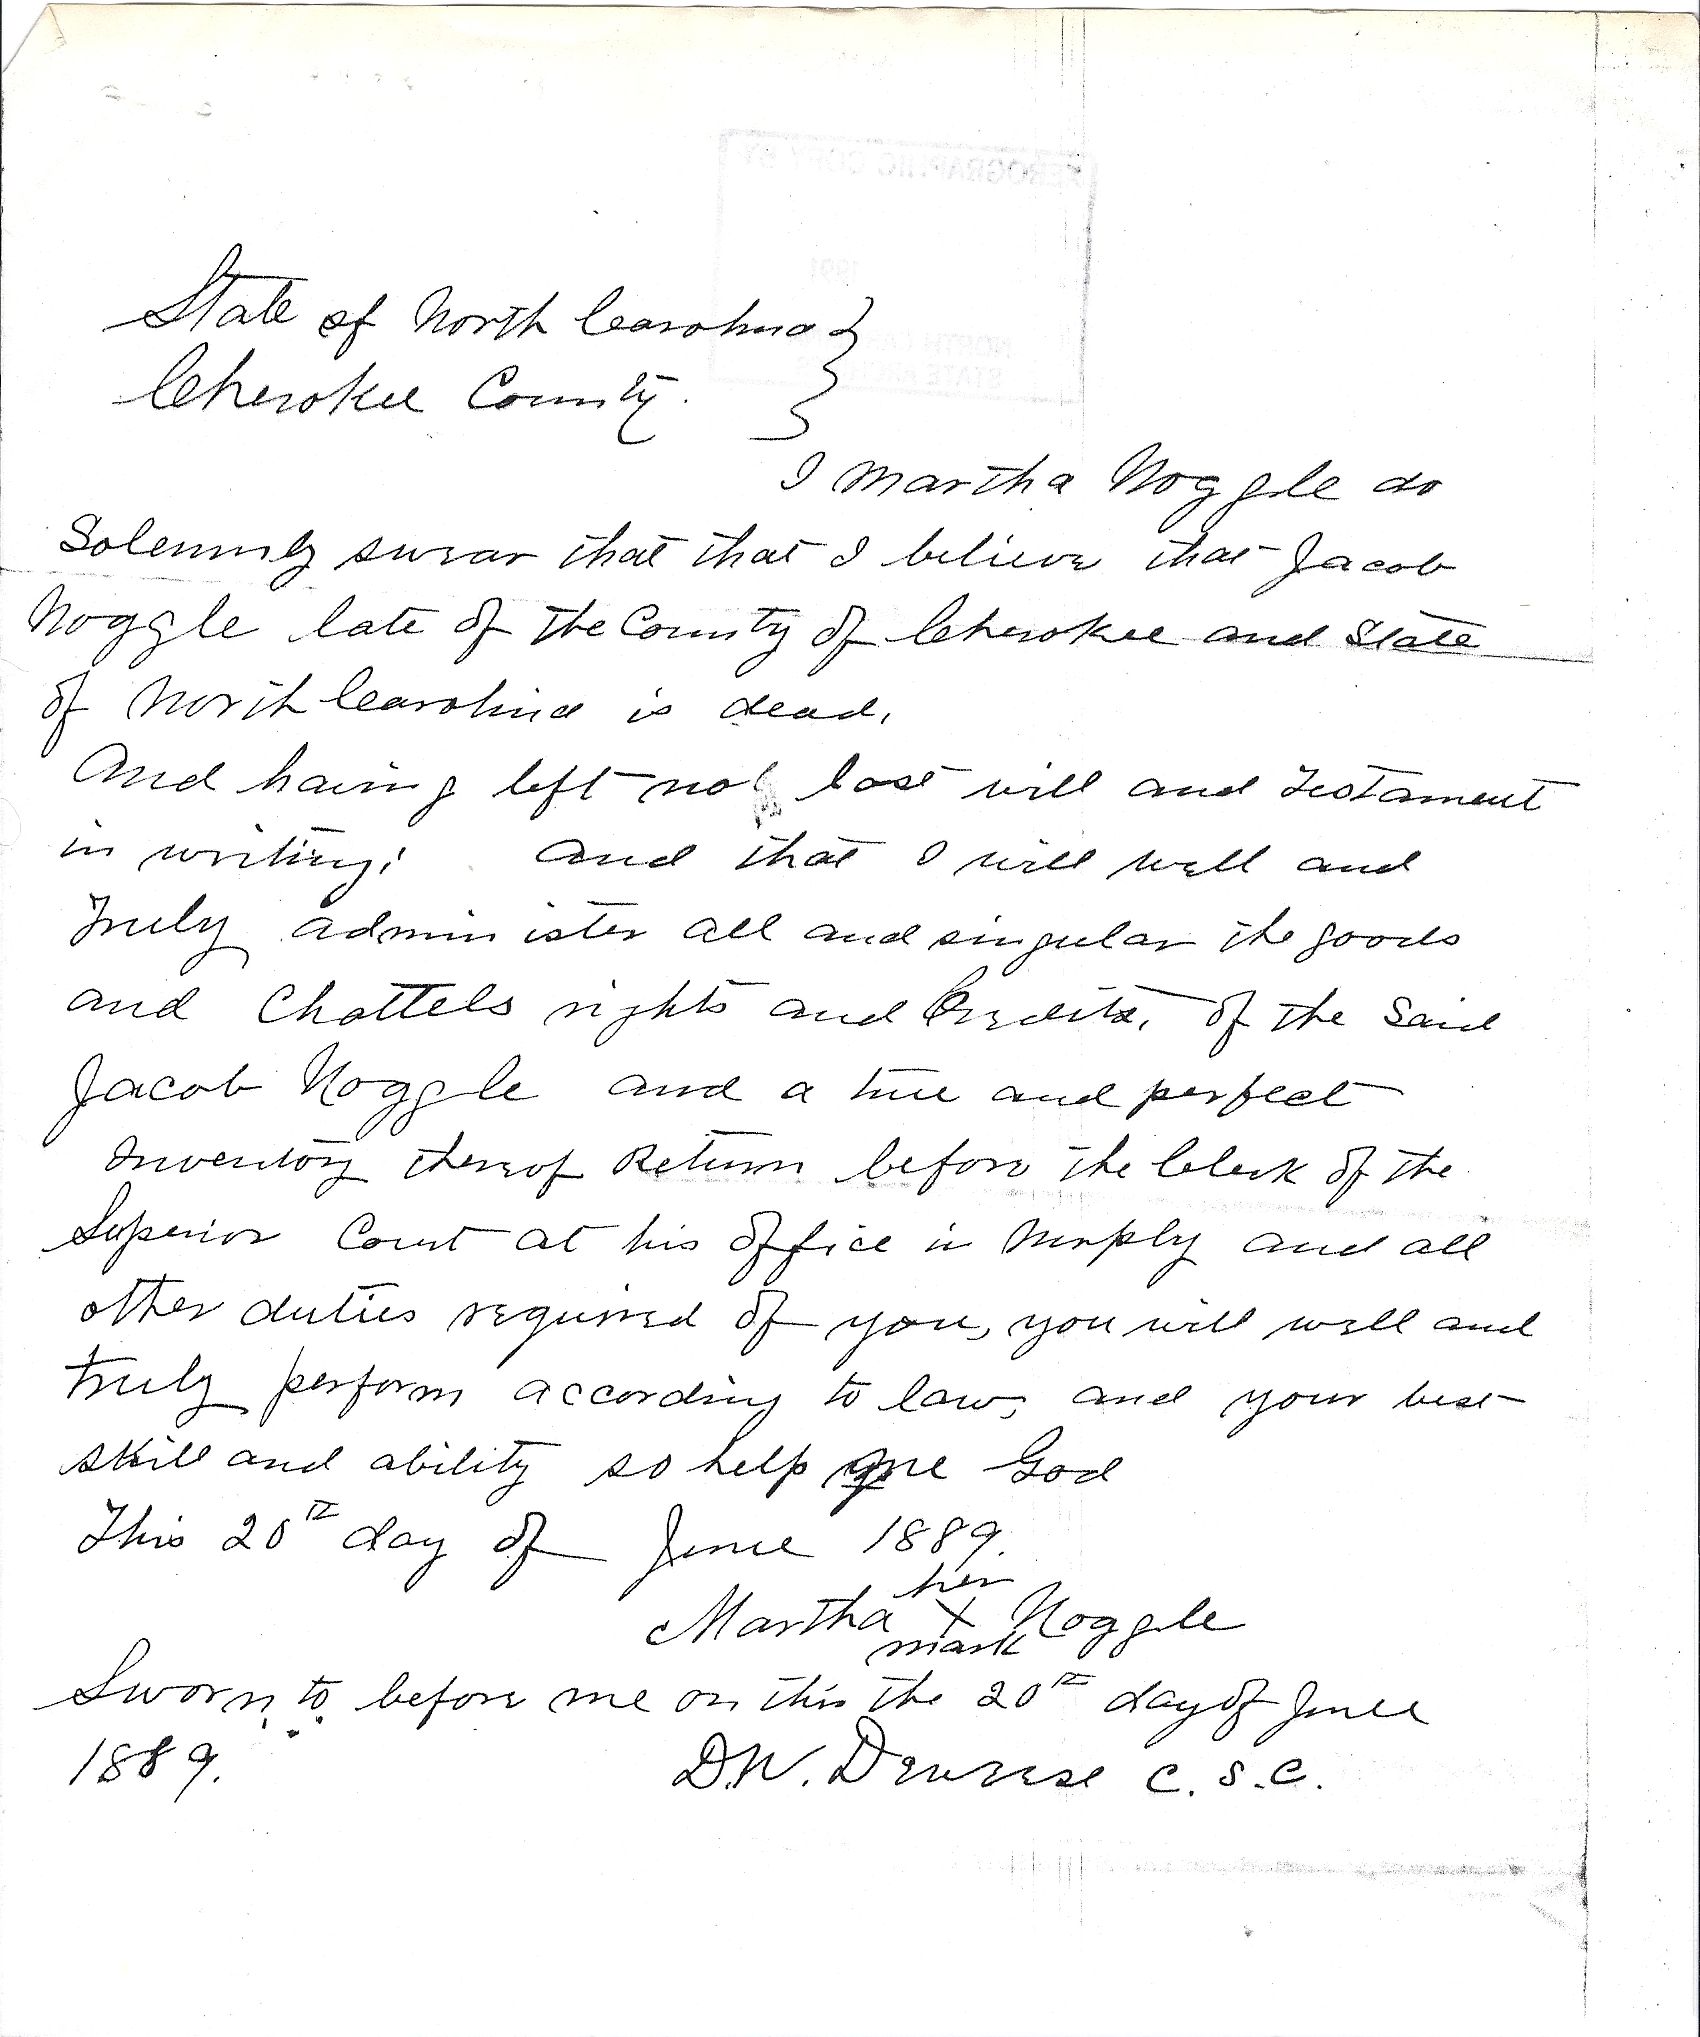 State of North Carolina }
Cherokee County. }
I Martha Noggle do
Solemnly swear that that I believe that Jacob
Noggle late of the County of Cherokee and State
of North Carolina is dead.
And having left no last will and Testament
in writing; And that I will well and
Truly administer all and singular the goods
and Chattels rights and Credits, of the Said
Jacob Noggle and a true and perfect
Inventory thereof Return before the Clerk of the
Superior Court at his office in Murphy and all
other duties required of you, you will well and
truly perform according to law, and your best
skill and ability so help me God
This 20th day of June 1889.
her
Martha X Noggle
mark
Sworn to before me on this the 20th day of June
1889. D.W. Deweese C.S.C.